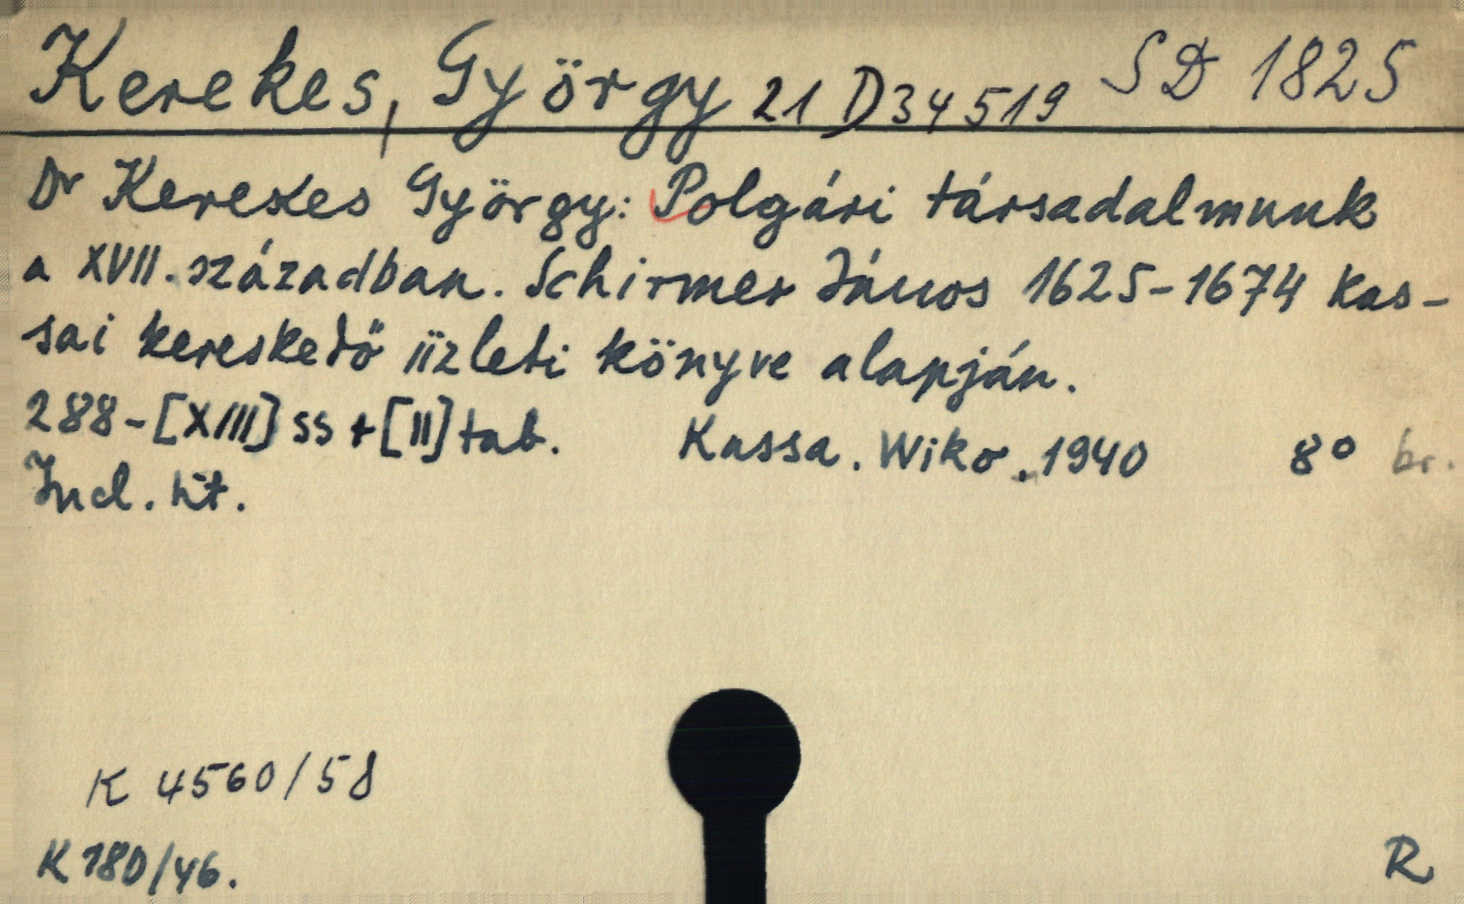 Kerekes, György 21 D34519 SD 1825
Dr Kerekes György: Polgári társadalmunk
a XVII. században. Schirmer János 1625-1674 kas-
sai kereskedő üzleti könyve alapján.
288-[XIII] ss + [II] tab. Kassa. Wiko. 1940 8° br.
Incl. lit.
K 4560/58
K 180/46.
R